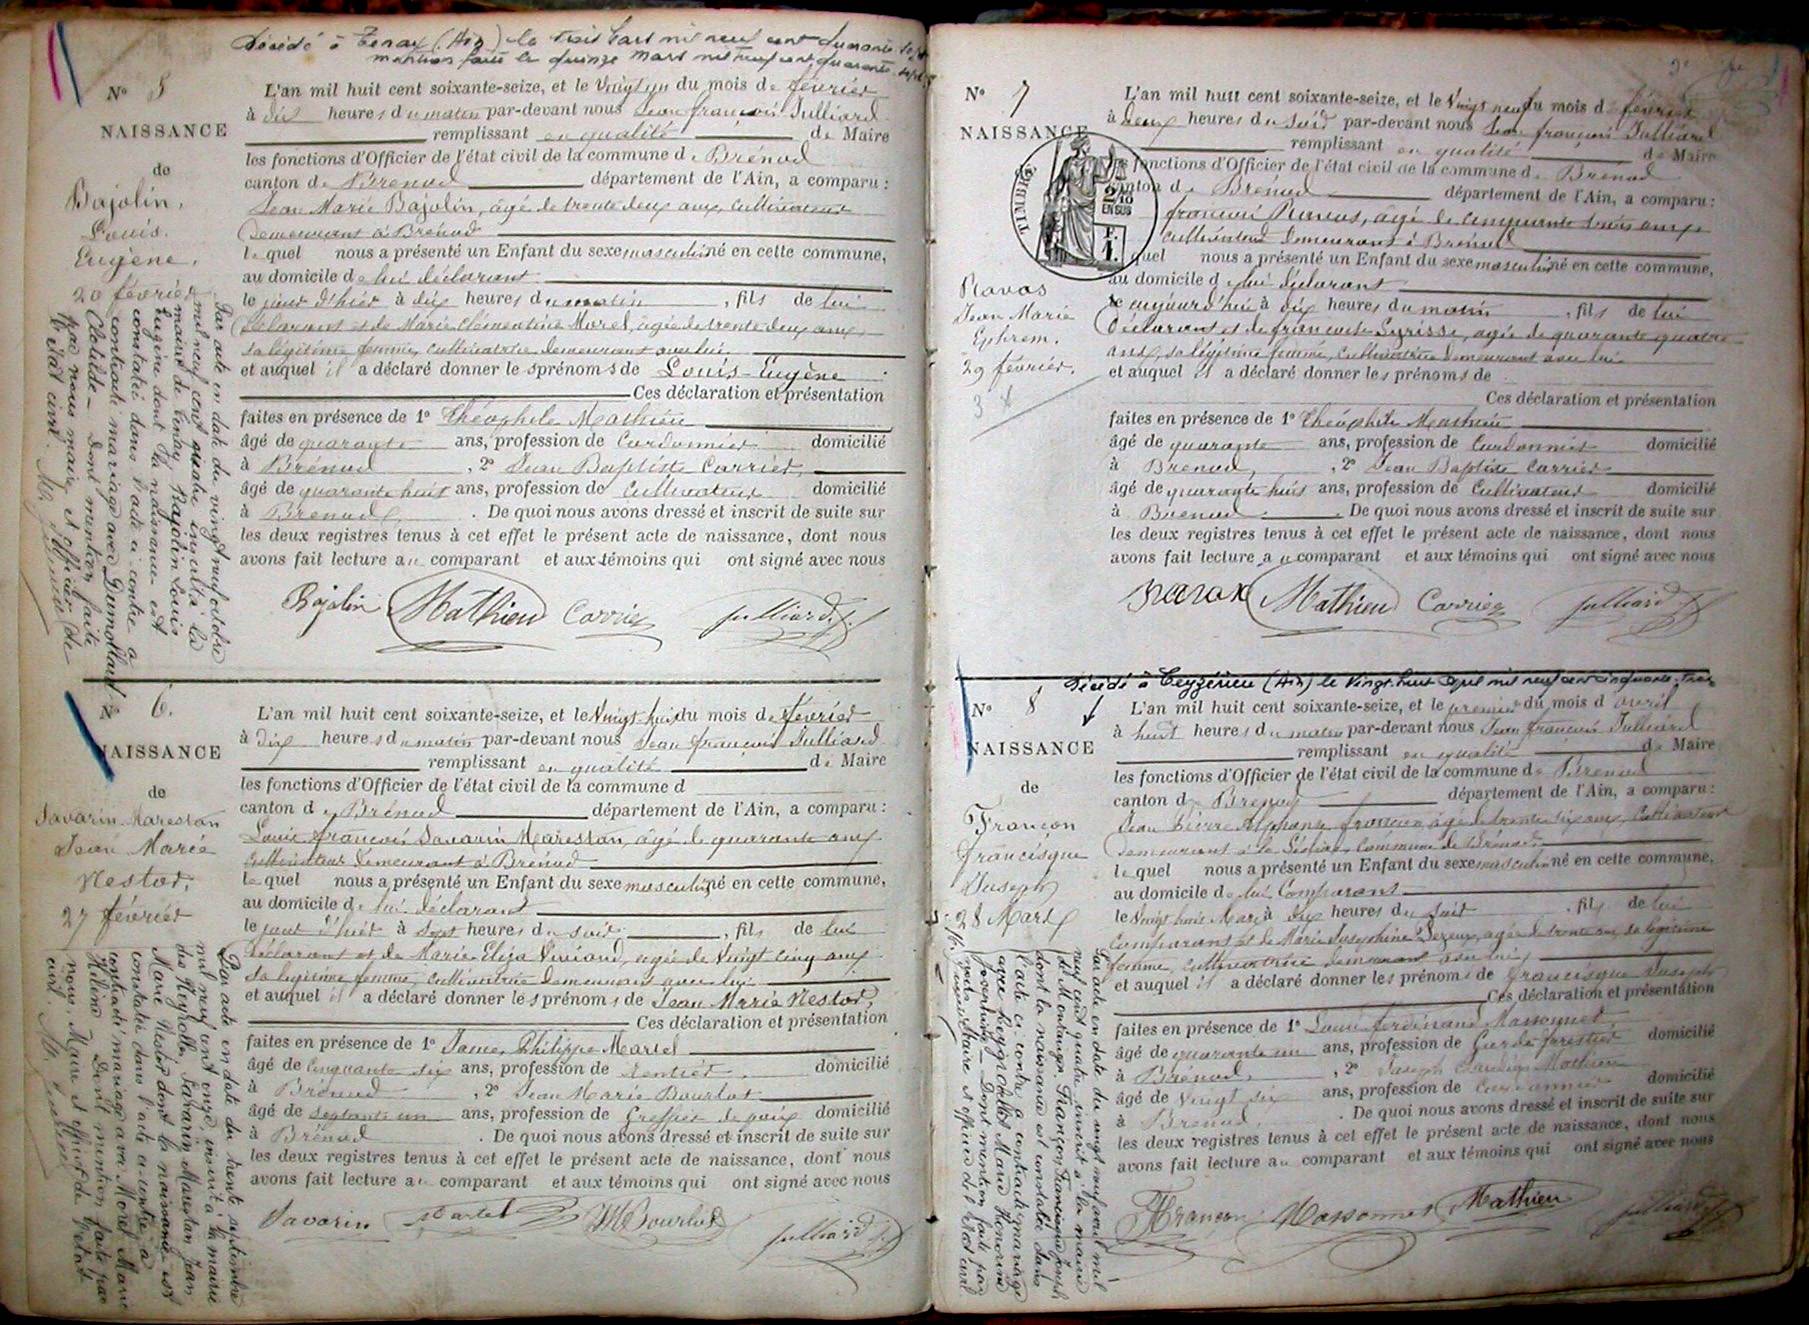 Décédé à Tenay (Ain) le trois Mars mil neuf cent quarante sept
mention faite le quinze Mars mil neuf cent quarante sept
N° 5
NAISSANCE
de
Bajolin,
Louis
Eugène,
20 février
Par acte en date du vingt neuf octobre
mil neuf cent quatre inscrit à la
mairie de Tenay, Bajolin Louis
Eugène dont la naissance est
constatée dans l'acte ci-contre a
contracté mariage avec Dumollard
Clotilde - Dont mention faite
par nous maire et officier de
l'état civil.
L'an mil huit cent soixante-seize, et le vingt un du mois de février
à dix heures du matin par-devant nous Jean françois Julliard
remplissant en qualité de Maire
les fonctions d'Officier de l'état civil de la commune de Brénod
canton de Brenod département de l'Ain, a comparu :
Jean Marie Bajolin, âgé de trente deux ans, cultivateur
demeurant à Brénod
lequel nous a présenté un Enfant du sexe masculin né en cette commune,
au domicile de lui déclarant
le jour d'hier à dix heures du matin, fils de lui
déclarant et de Marie Clémentine Morel, âgée de trente deux ans
sa légitime femme, cultivatrice demeurant avec lui
et auquel il a déclaré donner les prénoms de Louis-Eugène
Ces déclaration et présentation
faites en présence de 1° Théophile Mathieu
âgé de quarante ans, profession de Cordonnier domicilié
à Brénod, 2° Jean Baptiste Carrier,
âgé de quarante huit ans, profession de Cultivateur domicilié
à Brenod. De quoi nous avons dressé et inscrit de suite sur
les deux registres tenus à cet effet le présent acte de naissance, dont nous
avons fait lecture au comparant et aux témoins qui ont signé avec nous
Bajolin Mathieu Carrier Julliard
N° 6.
NAISSANCE
de
Savarin Marestan
Jean Marie
Nestor,
27 février
Par acte en date du trente septembre
mil neuf cent onze inscrit à la mairie
Savarin Marestan Jean
Marie Nestor dont la naissance est
constatée dans l'acte ci-contre a
contracté mariage avec Morel Marie
Dont mention faite par
nous, Maire et officier de l'état
civil.
L'an mil huit cent soixante-seize, et le Vingt huit du mois de février
à dix heures du matin par-devant nous Jean françois Julliard
remplissant en qualité de Maire
les fonctions d'Officier de l'état civil de la commune d
canton de Brénod département de l'Ain, a comparu :
Louis françois Savarin Marestan, âgé de quarante ans
cultivateur demeurant à Brenod
lequel nous a présenté un Enfant du sexe masculin né en cette commune,
au domicile de lui déclarant
le jour d'hier à sept heures du soir, fils de lui
déclarant et de Marie Eliza Viviand, agée de Vingt cinq ans
sa légitime femme, cultivatrice demeurant avec lui
et auquel il a déclaré donner les prénoms de Jean Marie Nestor,
Ces déclaration et présentation
faites en présence de 1° James Philippe Martel
âgé de cinquante six ans, profession de rentier domicilié
à Brénod, 2° Jean Marie Bourlot
âgé de septante un ans, profession de Greffier de paix domicilié
à Brénod. De quoi nous avons dressé et inscrit de suite sur
les deux registres tenus à cet effet le présent acte de naissance, dont nous
avons fait lecture au comparant et aux témoins qui ont signé avec nous
Savarin Martel JMBourlot Julliard
N° 7
NAISSANCE
TIMBRE
2/10
EN SUS
F.
1.
Ravas
Jean Marie
Ephrem.
29 février.
L'an mil huit cent soixante-seize, et le Vingt neuf du mois de février
à deux heures du soir par-devant nous Jean françois Julliard
remplissant en qualité de Maire
les fonctions d'Officier de l'état civil de la commune de Brenod
canton de Brenod département de l'Ain, a comparu :
françois Ravas, âgé de cinquante trois ans
cultivateur demeurant à Brenod
lequel nous a présenté un Enfant du sexe masculin né en cette commune,
au domicile de lui déclarant
le aujourd'hui à dix heures du matin, fils de lui
Déclarant et de françoise Lyrisse, agée de quarante quatre
ans, sa légitime femme, cultivatrice demeurant avec lui
et auquel il a déclaré donner les prénoms de
Ces déclaration et présentation
faites en présence de 1° Théophile Mathieu
âgé de quarante ans, profession de Cordonnier domicilié
à Brenod, 2° Jean Baptiste Carrier
âgé de quarante huit ans, profession de Cultivateur domicilié
à Brenod. De quoi nous avons dressé et inscrit de suite sur
les deux registres tenus à cet effet le présent acte de naissance, dont nous
avons fait lecture au comparant et aux témoins qui ont signé avec nous
Mathieu Carrier Julliard
Décédé à Ceyzérieu (Ain) le Vingt-huit avril mil neuf cent cinquante-trois
N° 8
NAISSANCE
de
Françon
francisque
Joseph
28 Mars
Par acte en date du vingt neuf avril mil
neuf cent quatre inscrit à la mairie
de Montange Françon Francisque Joseph
dont la naissance est constatée dans
l'acte ci-contre a contracté mariage
avec Marie Honorine
Dont mention faite par
nous Maire et officier de l'état civil
L'an mil huit cent soixante-seize, et le premier du mois d'avril
à huit heures du matin par-devant nous Jean françois Julliard
remplissant en qualité de Maire
les fonctions d'Officier de l'état civil de la commune de Brenod
canton de Brenod département de l'Ain, a comparu :
Jean Pierre Alphonse françon, âgé de trente six ans, Cultivateur
demeurant à la commune de Brénod
lequel nous a présenté un Enfant du sexe masculin né en cette commune,
au domicile de lui Comparant
le Vingt huit Mars à dix heures du soir, fils de lui
comparant et de Marie Josephine agée de trente ans, sa légitime
femme, cultivatrice demeurant avec lui
et auquel il a déclaré donner les prénoms de francisque Joseph
Ces déclaration et présentation
faites en présence de 1° Louis ferdinand Massonnet
âgé de quarante un ans, profession de Garde forestier domicilié
à Brénod, 2° Joseph Claudius Mathieu
âgé de Vingt six ans, profession de Cordonnier domicilié
à Brenod. De quoi nous avons dressé et inscrit de suite sur
les deux registres tenus à cet effet le présent acte de naissance, dont nous
avons fait lecture au comparant et aux témoins qui ont signé avec nous
Françon Massonnet Mathieu Julliard